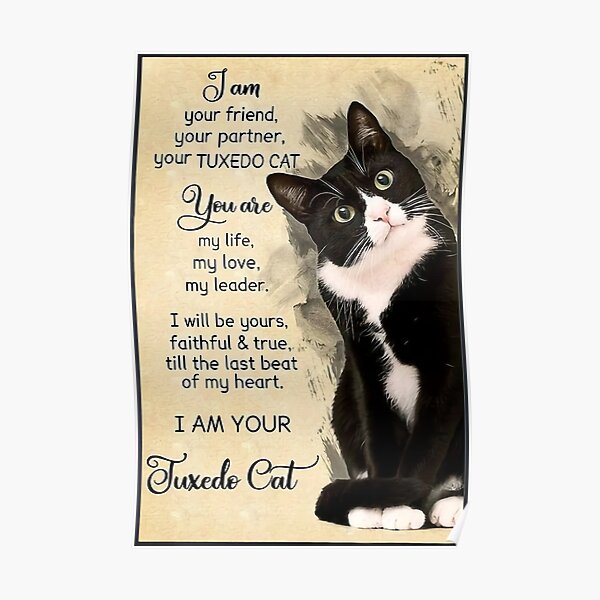 I am
your friend,
your partner,
your TUXEDO CAT
You are
my life,
my love,
my leader.
I will be yours,
faithful & true,
till the last beat
of my heart.
I AM YOUR
Tuxedo Cat